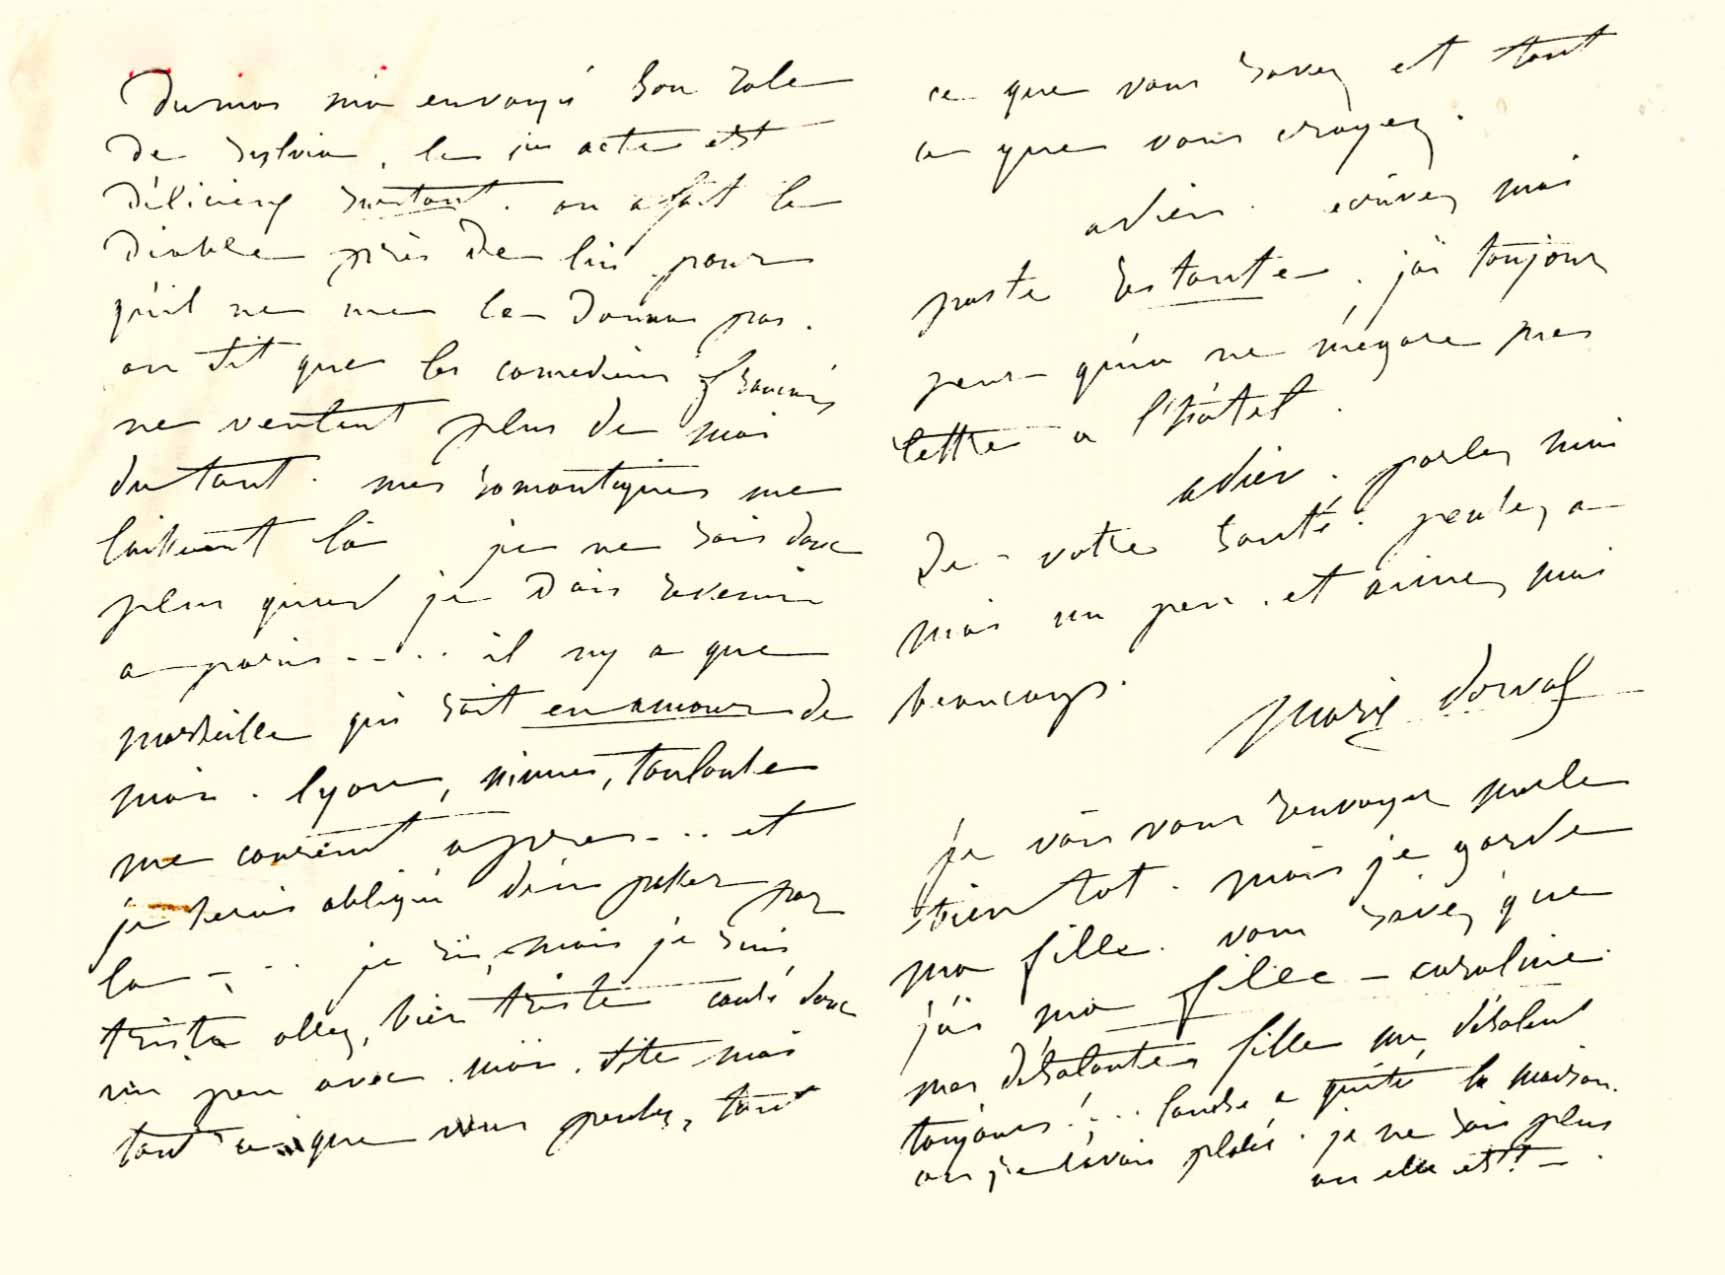 Dumas m'a envoyé son role
de Sylvia, le 1er acte est
délicieux surtout. on a fait le
diable près de lui pour
qu'il ne me le donna pas.
on dit que les comediens francais
ne veulent plus de moi
du tout. mes romantiques me
laissent là je ne sais donc
plus quand je dois revenir
a paris ..... il ny a que
marseille qui soit en amour de
moi. lyon, nimes, toulouse
me courent apres ... et
je serais obligée d'en passer par
la ... je ris, mais je suis
triste allez, bien triste causé donc
un peu avec moi. dite moi
tout ce que vous pensez, tout
ce que vous savez et tout
ce que vous croyez.
adieu. ecrivez moi
poste restante. j'ai toujours
peur qu'on ne m'égare mes
lettre a l'hôtel.
adieu. parlez moi
de votre santé. pensez a
moi un peu. et aimez moi
beaucoup.
Marie dorval
je vais vous renvoyer merle
bientot. mais je garde
ma fille. vous savez que
j'ai ma fille – caroline
mes désolantes fille me désolent
toujours! ... louise a quité la maison.
ou je l'avais placée. je ne sais plus
ou elle est! –.